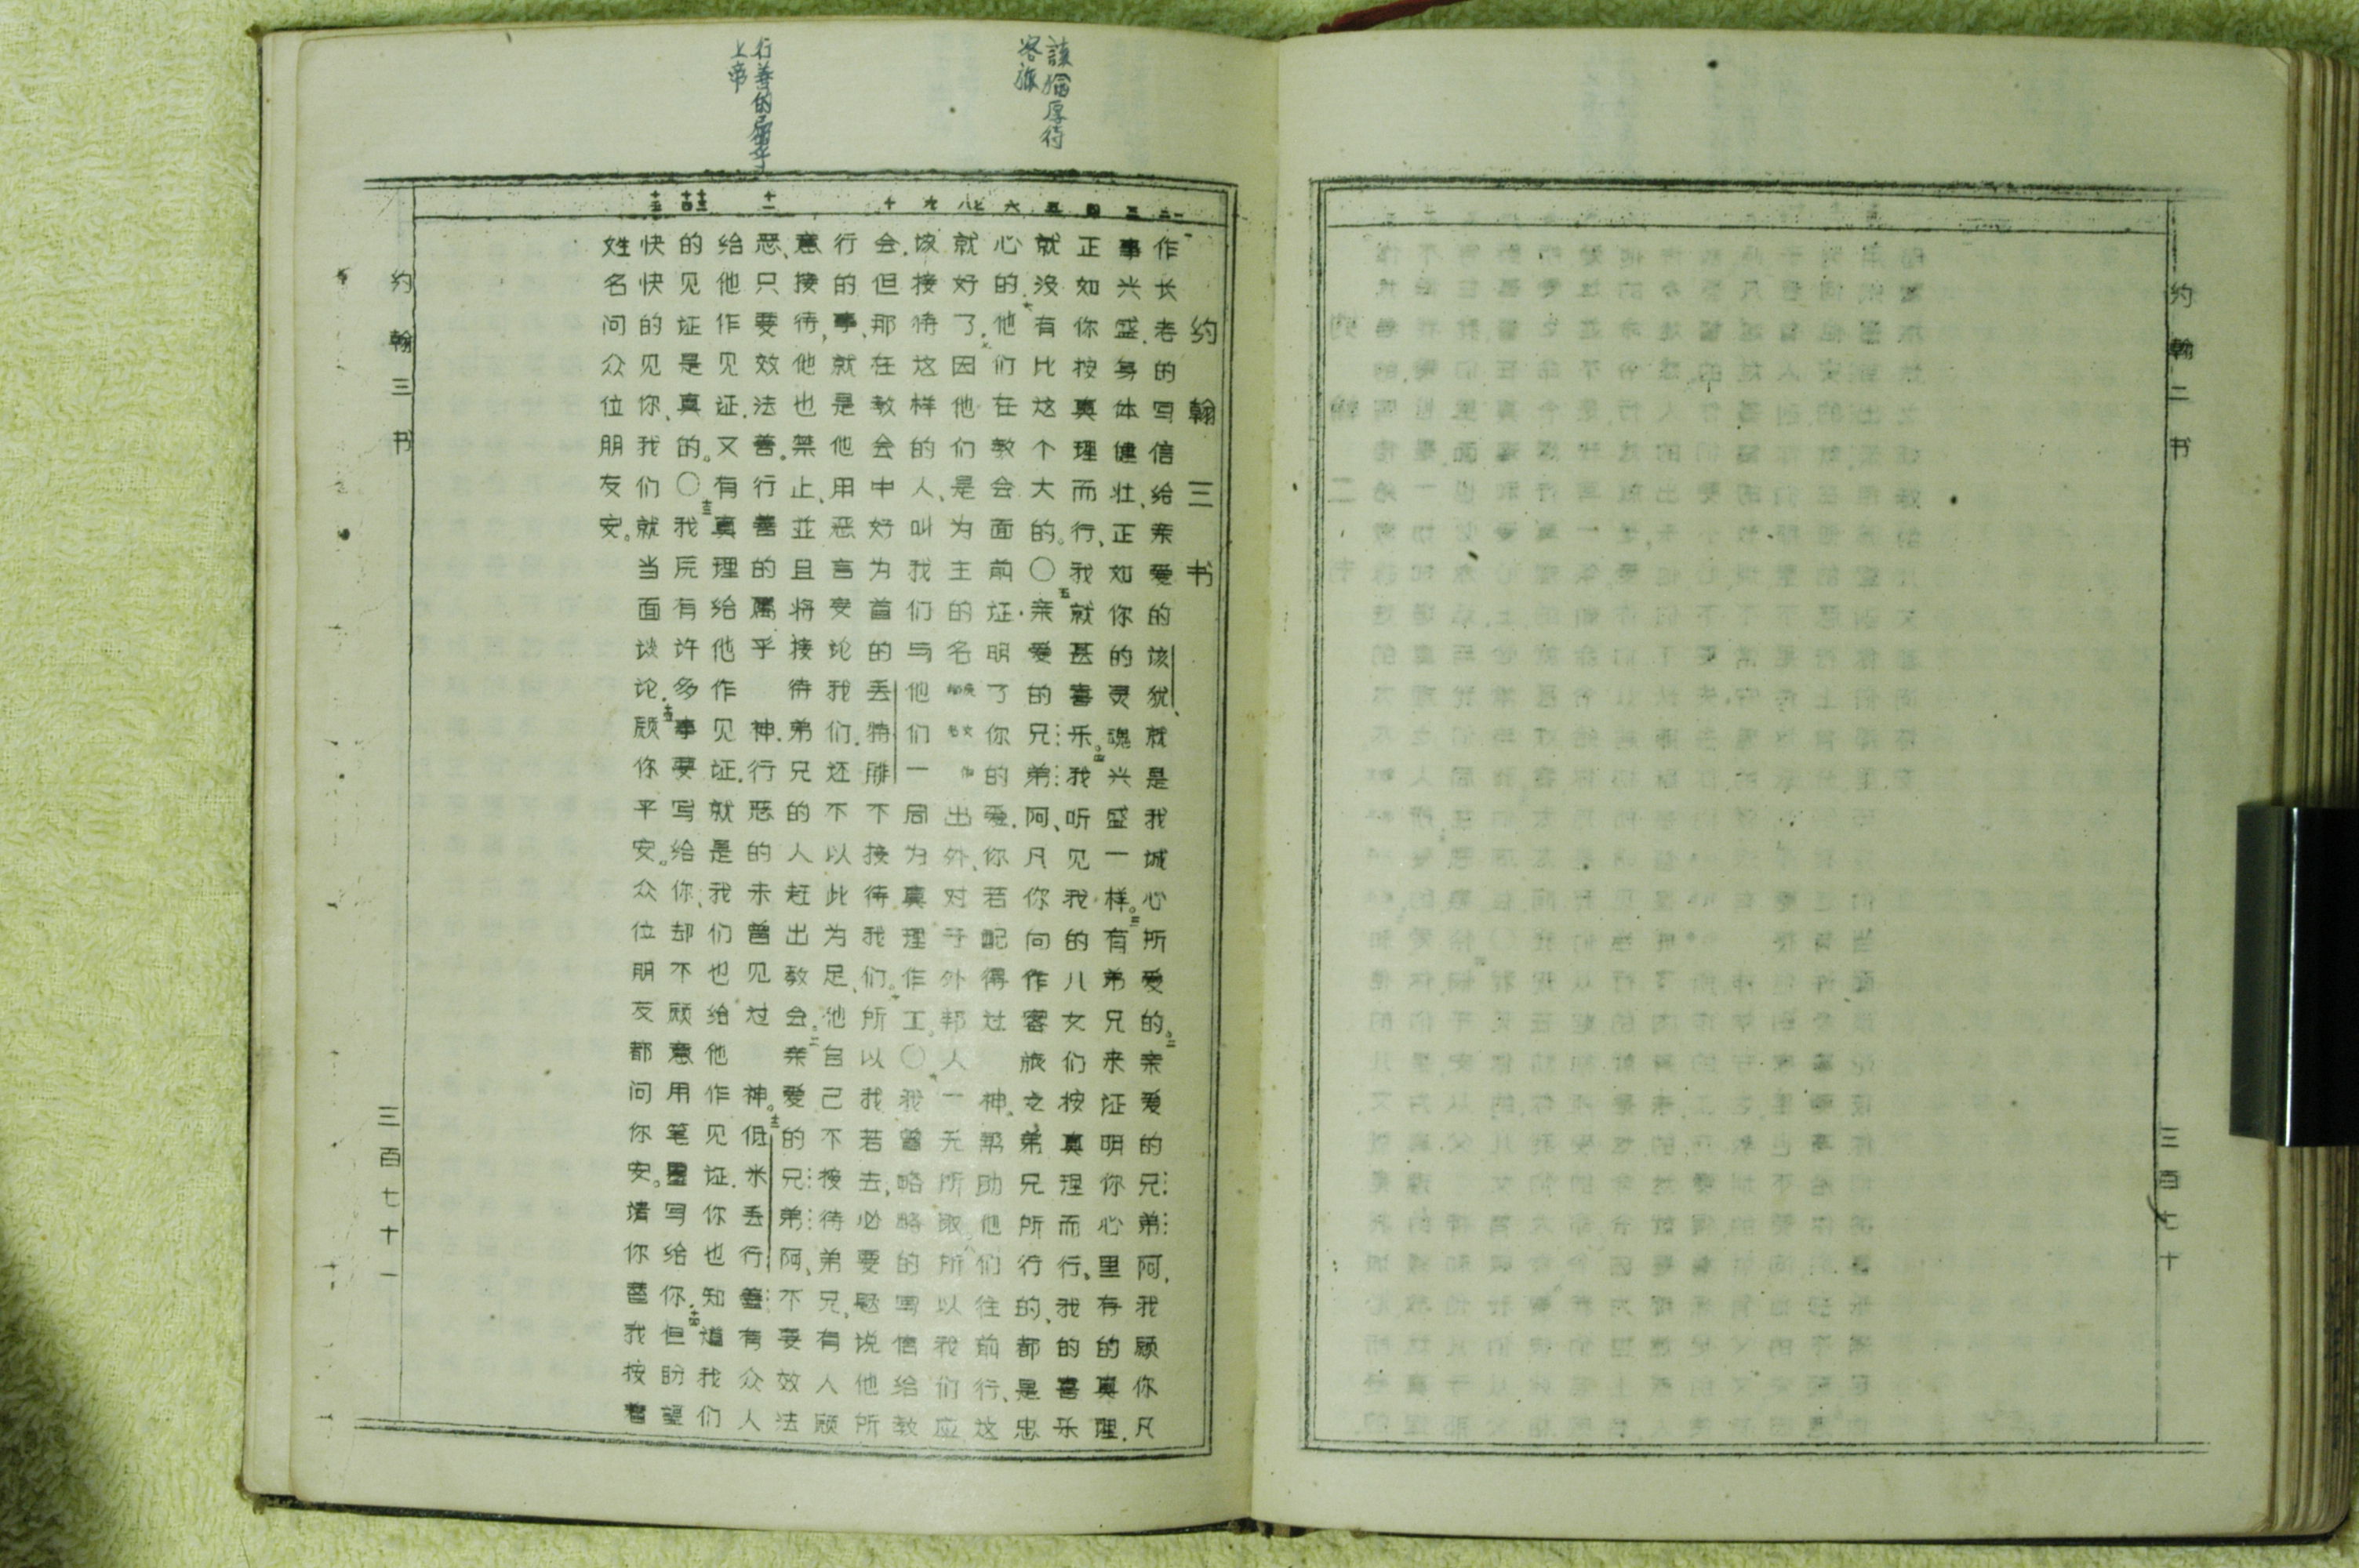 约翰二书
三百七十
該猶厚待
客旅
行善的屬乎
上帝
约翰三书
作长老的写信给亲爱的该犹、就是我城心所爱的。二亲爱的兄弟阿、我顾你凡
事兴盛、身体健壮、正如你的灵魂兴盛一样。三有弟兄来证明你心里存的真理、
正如你按真理而行、我就甚喜乐。四我听见我的儿女们按真理而行、我的喜乐
就没有比这个大的。〇五亲爱的兄弟阿、凡你向作客旅之弟兄所行的、都是忠
心的、他们在教会面前证明了你的爱、你若配得过神。帮助他们往前行、这
就好了、因他们是为主的名出外、对于外邦人一无所取、所以我们应
该接待这样的人、叫我们与他们一同为真理作工。〇我曾略略的写信给教
会、但那在教会中好为首的丢特腓不接待我们。所以我若去、必要题说他所
行的事、就是他用恶言妄论我们、还不以此为足、他自己不接待弟兄、有人顾
意接待、他也禁止、並且将接待弟兄的人赶出教会。亲爱的兄弟阿、不要效法
恶、只要效法善。行善的属乎神、行恶的未曾见过神。十二低米丢行善有众人
给他作见证、又有真理给他作见证、就是我们也给他作见证、你也知道我们
的见证是真的。〇十三我原有许多事要写给你、却不顾意用笔墨写给你、十四但盼望
快快的见你、我们就当面谈论、十五顾你平安。众位朋友都问你安。请你替我按着
姓名问众位朋友安。
约翰三书
三百七十一